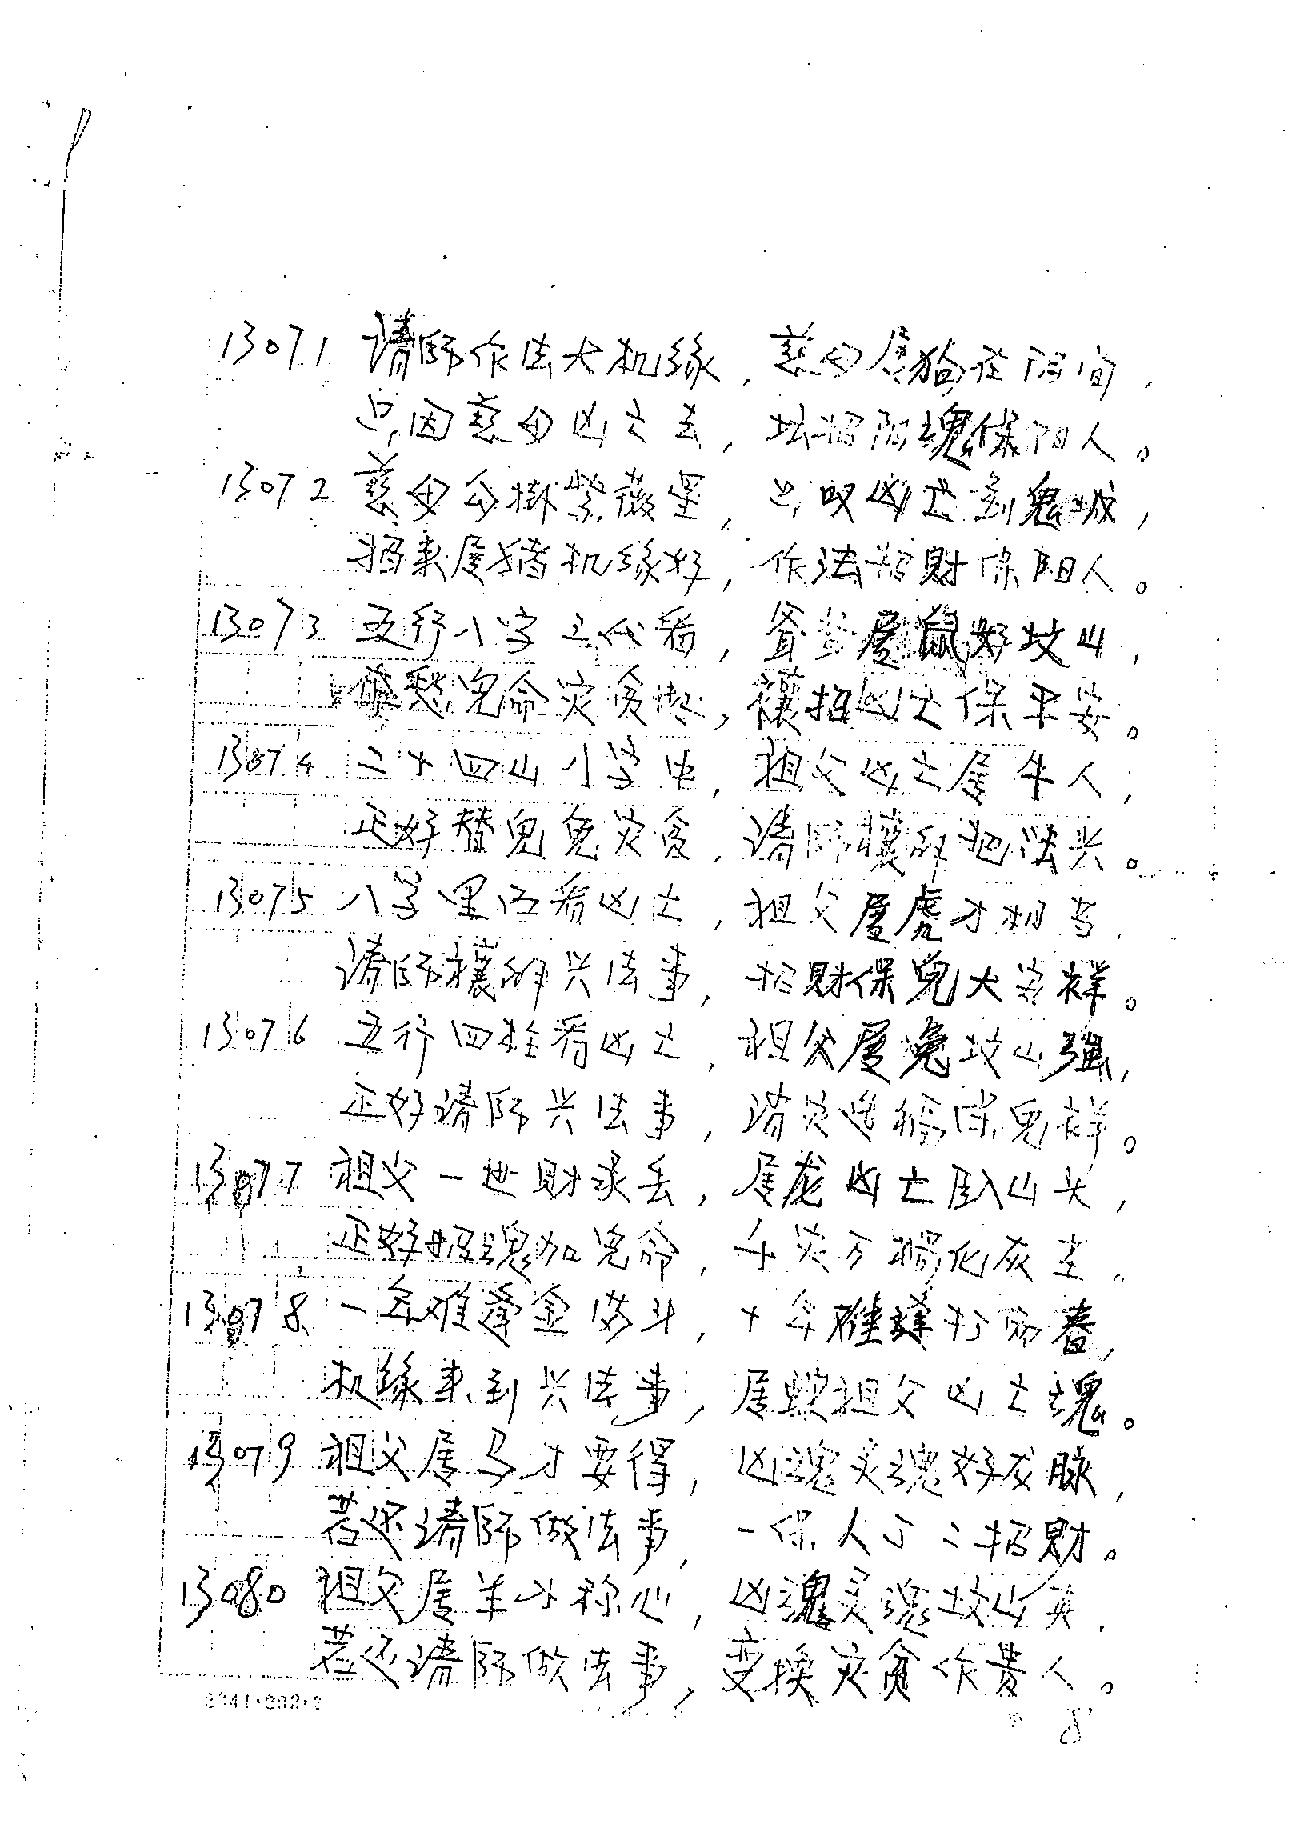 13071 请师作法大机缘，慈母属狗在阴间，
只因慈母凶亡去，坛招阴魂保阳人。
13072 慈母命掛紫薇星，只叹凶亡到鬼城，
招来属猪机缘好，作法招财保阳人。
13073 五行八字三代看，爷爷属鼠好坟山，
愁儿命灾贫，禳招凶亡保平安。
13074 二十四山小学出，祖父凶亡属牛人，
正好替儿免灾贫，请师禳解把法兴。
13075 八字里西看凶亡，祖父属虎才相当，
请师禳解兴法事，招财保儿大吉祥。
13076 五行四柱看凶亡，祖父属兔坟山强，
正好请师兴法事，消灾造福保儿祥。
13077 祖父一世财录丢，属龙凶亡卧山头，
正好招魂加儿命，千灾万祸化灰
13078 一年难逢金满斗，十年难逢打雨春，
机缘来到兴法事，属蛇祖父凶亡魂。
13079 祖父属马才要得，凶魂灵魂好发脉，
若还请师做法事，一保人丁二招财。
13080 祖父属羊才称心，凶魂灵魂坟山真，
若还请师做法事，变换灾贫作贵人。
8